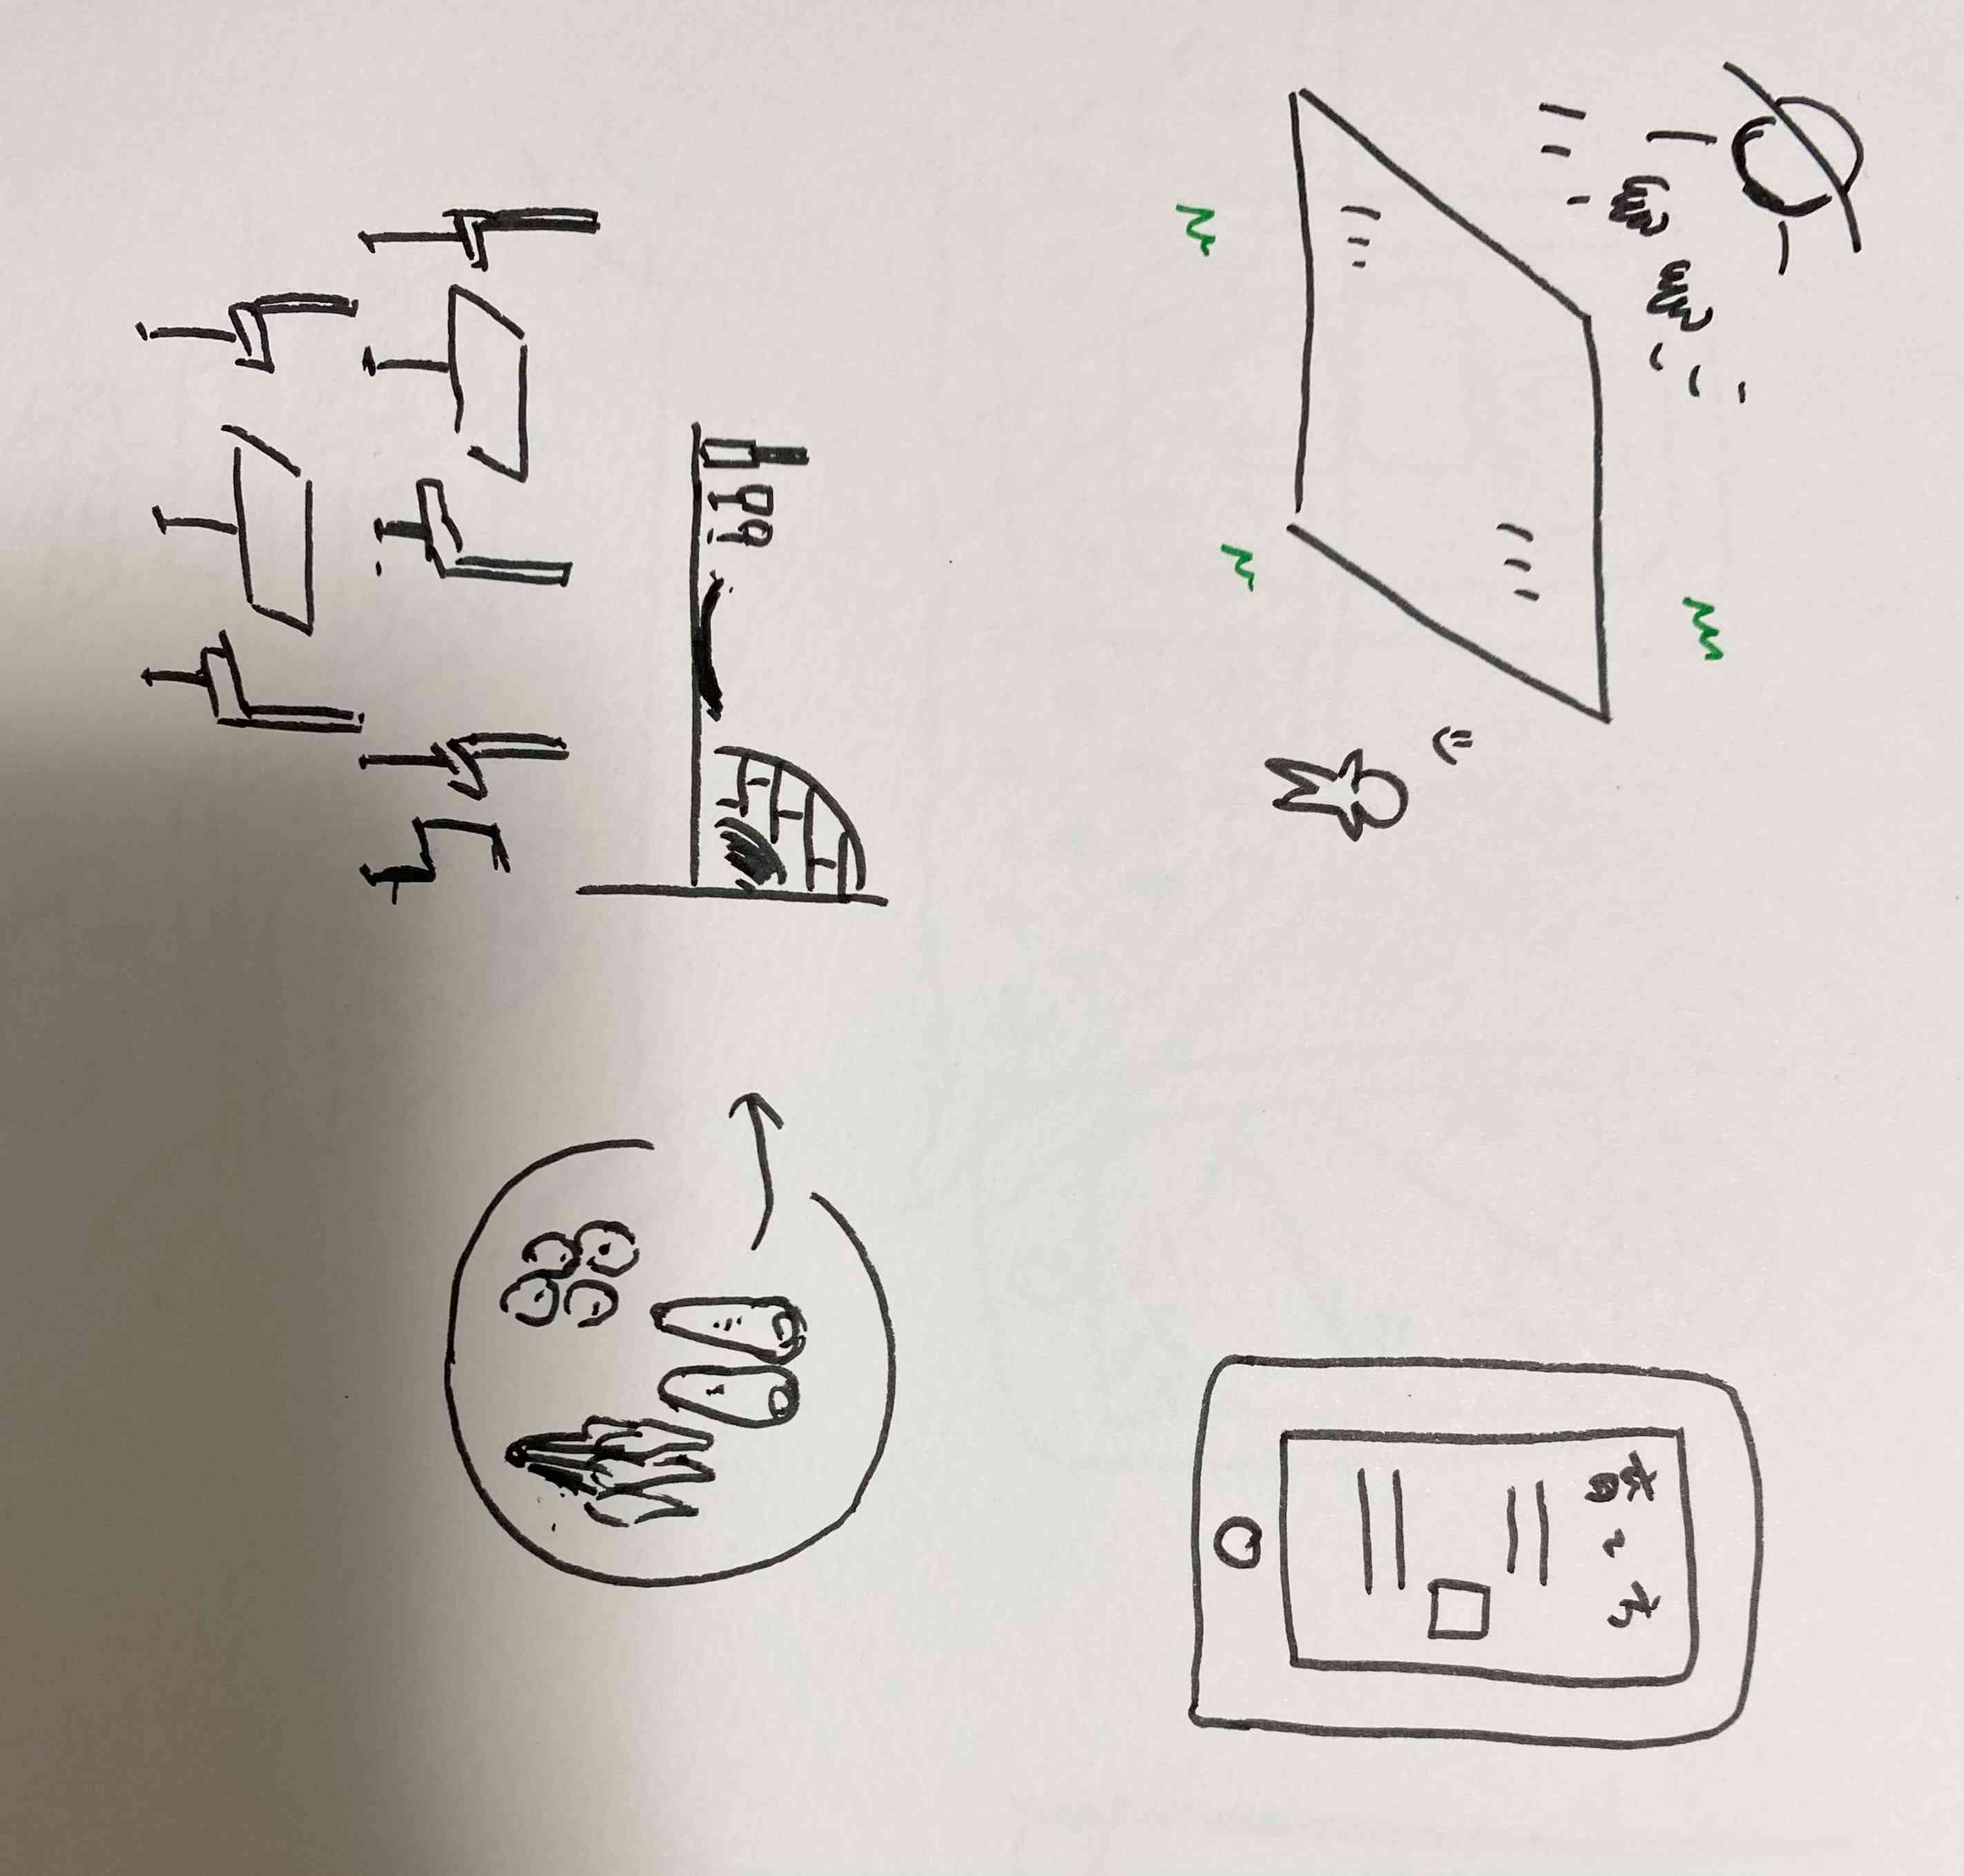 育て方